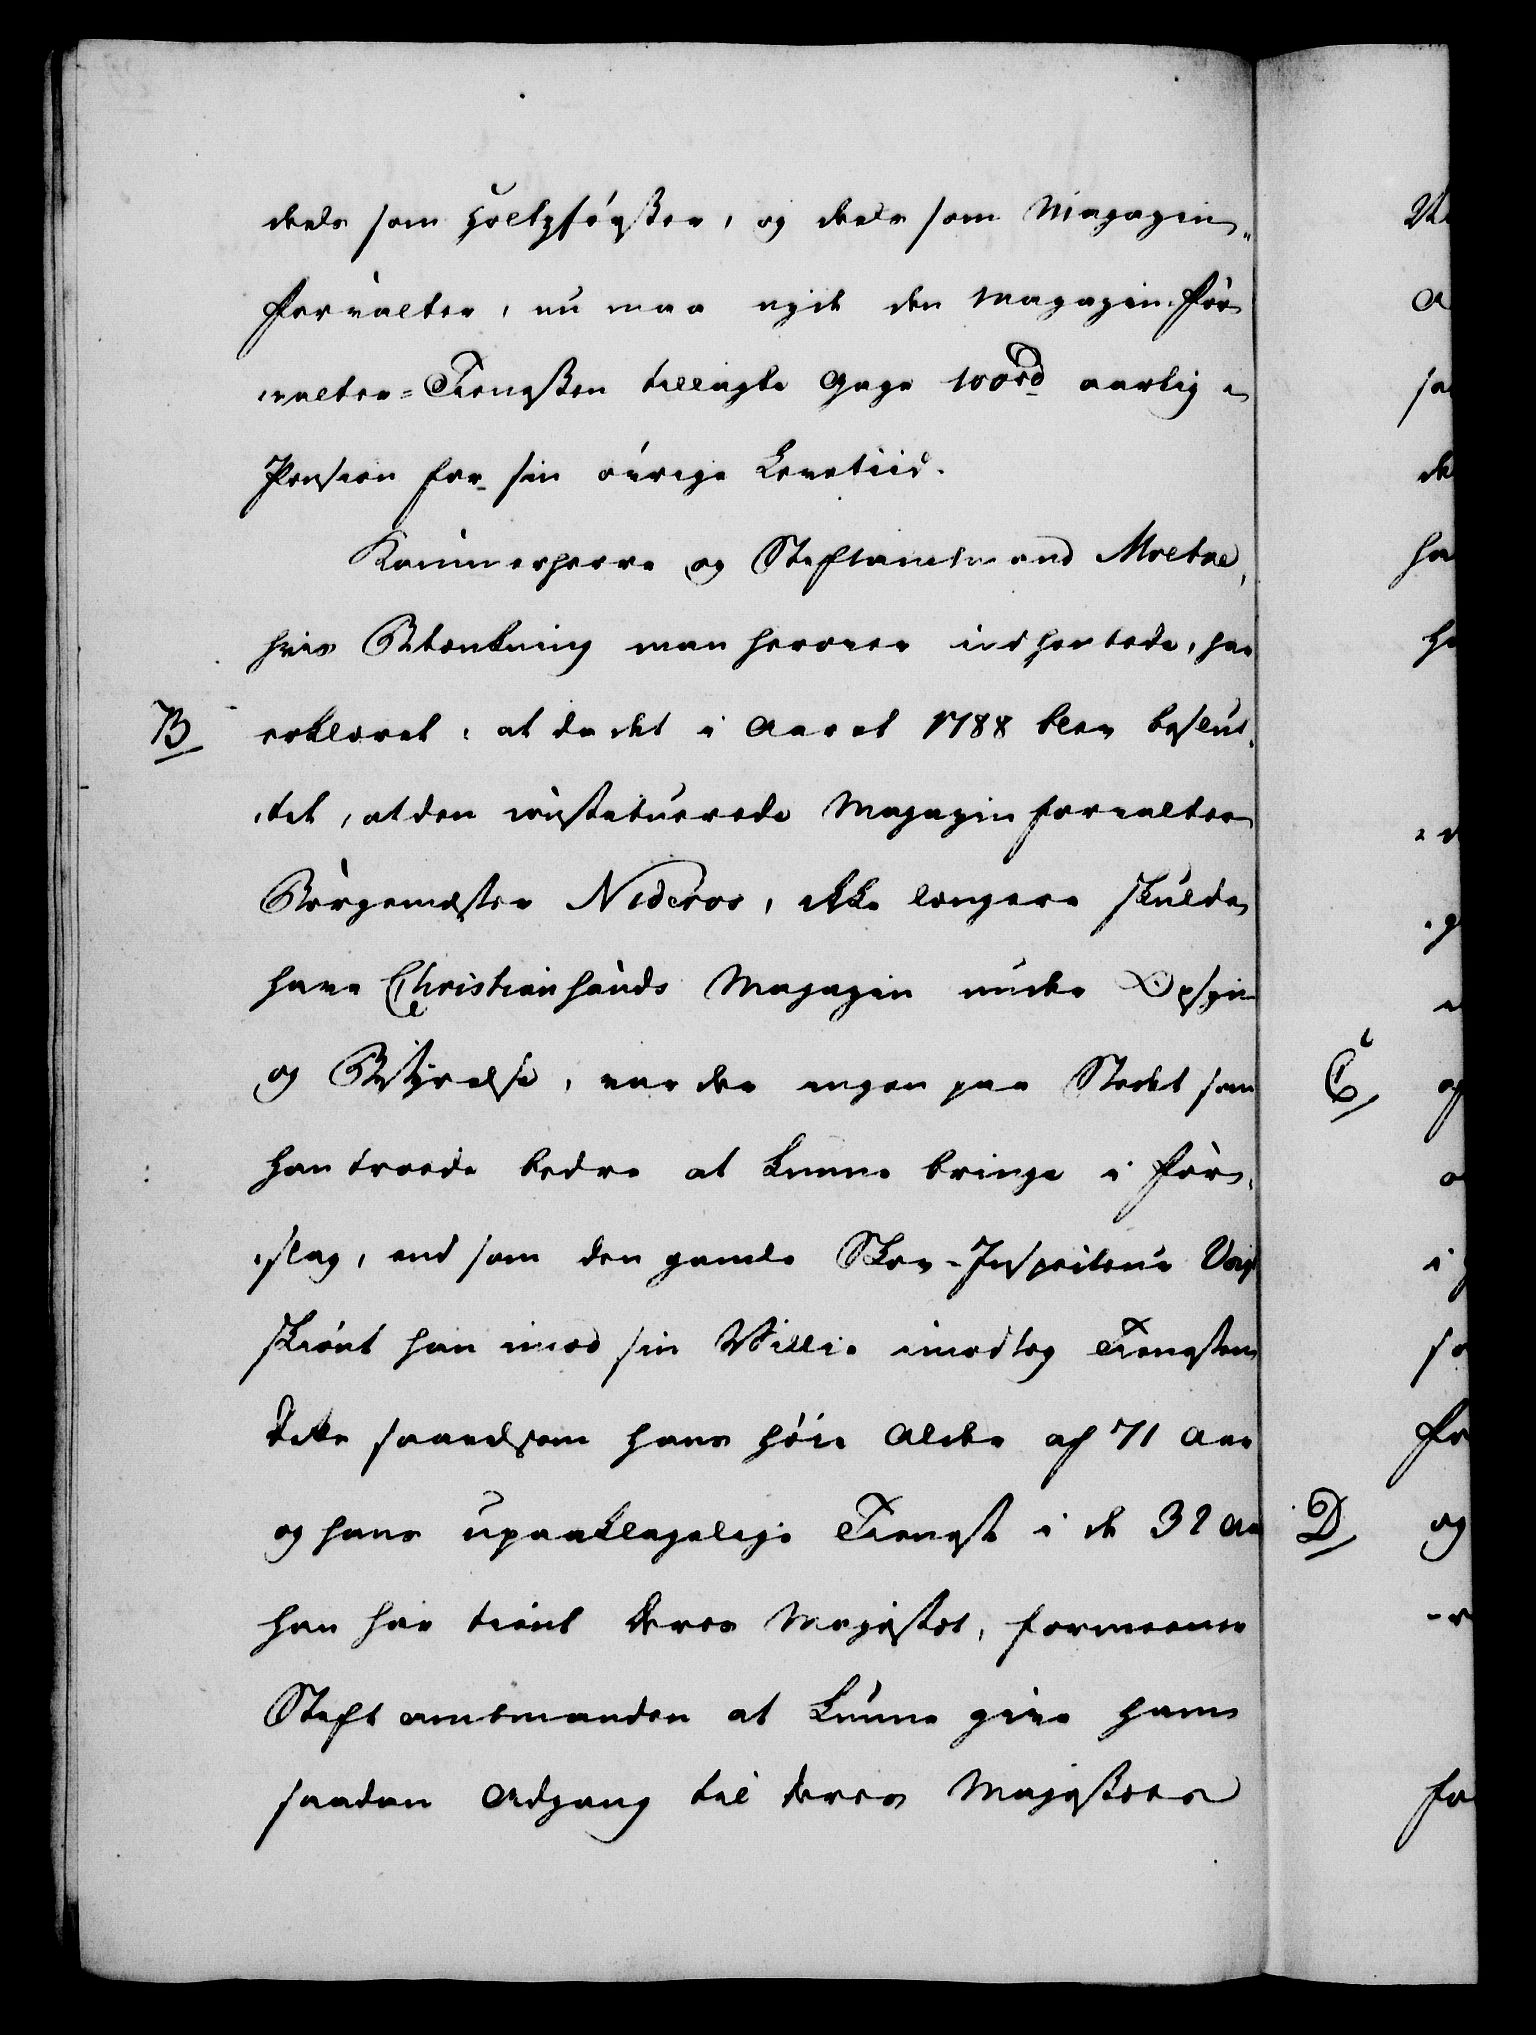 deels som Holtzförster, og deels som Magazin„
forvalter, nu maa nyde den Magazin-For
„valter-Tienesten tillagte Gage 100 rd aarlig i
Pension for sin övrige Levetiid.
Kammerherre og Stiftamtmand Moltke,
hvis Betænkning man herover indhentede, har
B erklæret: at da det i Aaret 1788 blev beslut„
„tet, at den constituerede Magazinforvalter
Borgemester Nideros, ikke længere skulde
have Christiansands Magazin under Opsyn
og Bestyrelse, var der ingen paa Stedet som
han troede bedre at kunne bringe i For„
„slag, end som den gamle Skov-Inspecteur
skiönt han imod sin Villie imodtog Tienesten
Dette saavelsom hans höie Alder af 71 Aar
og hans upaaklagelige Tieneste i de 32 Aar
han har tient Deres Majestet, formeener
Stiftamtmanden at kunne give ham
saadan Adgang til Deres Majestets
C
af
D
og